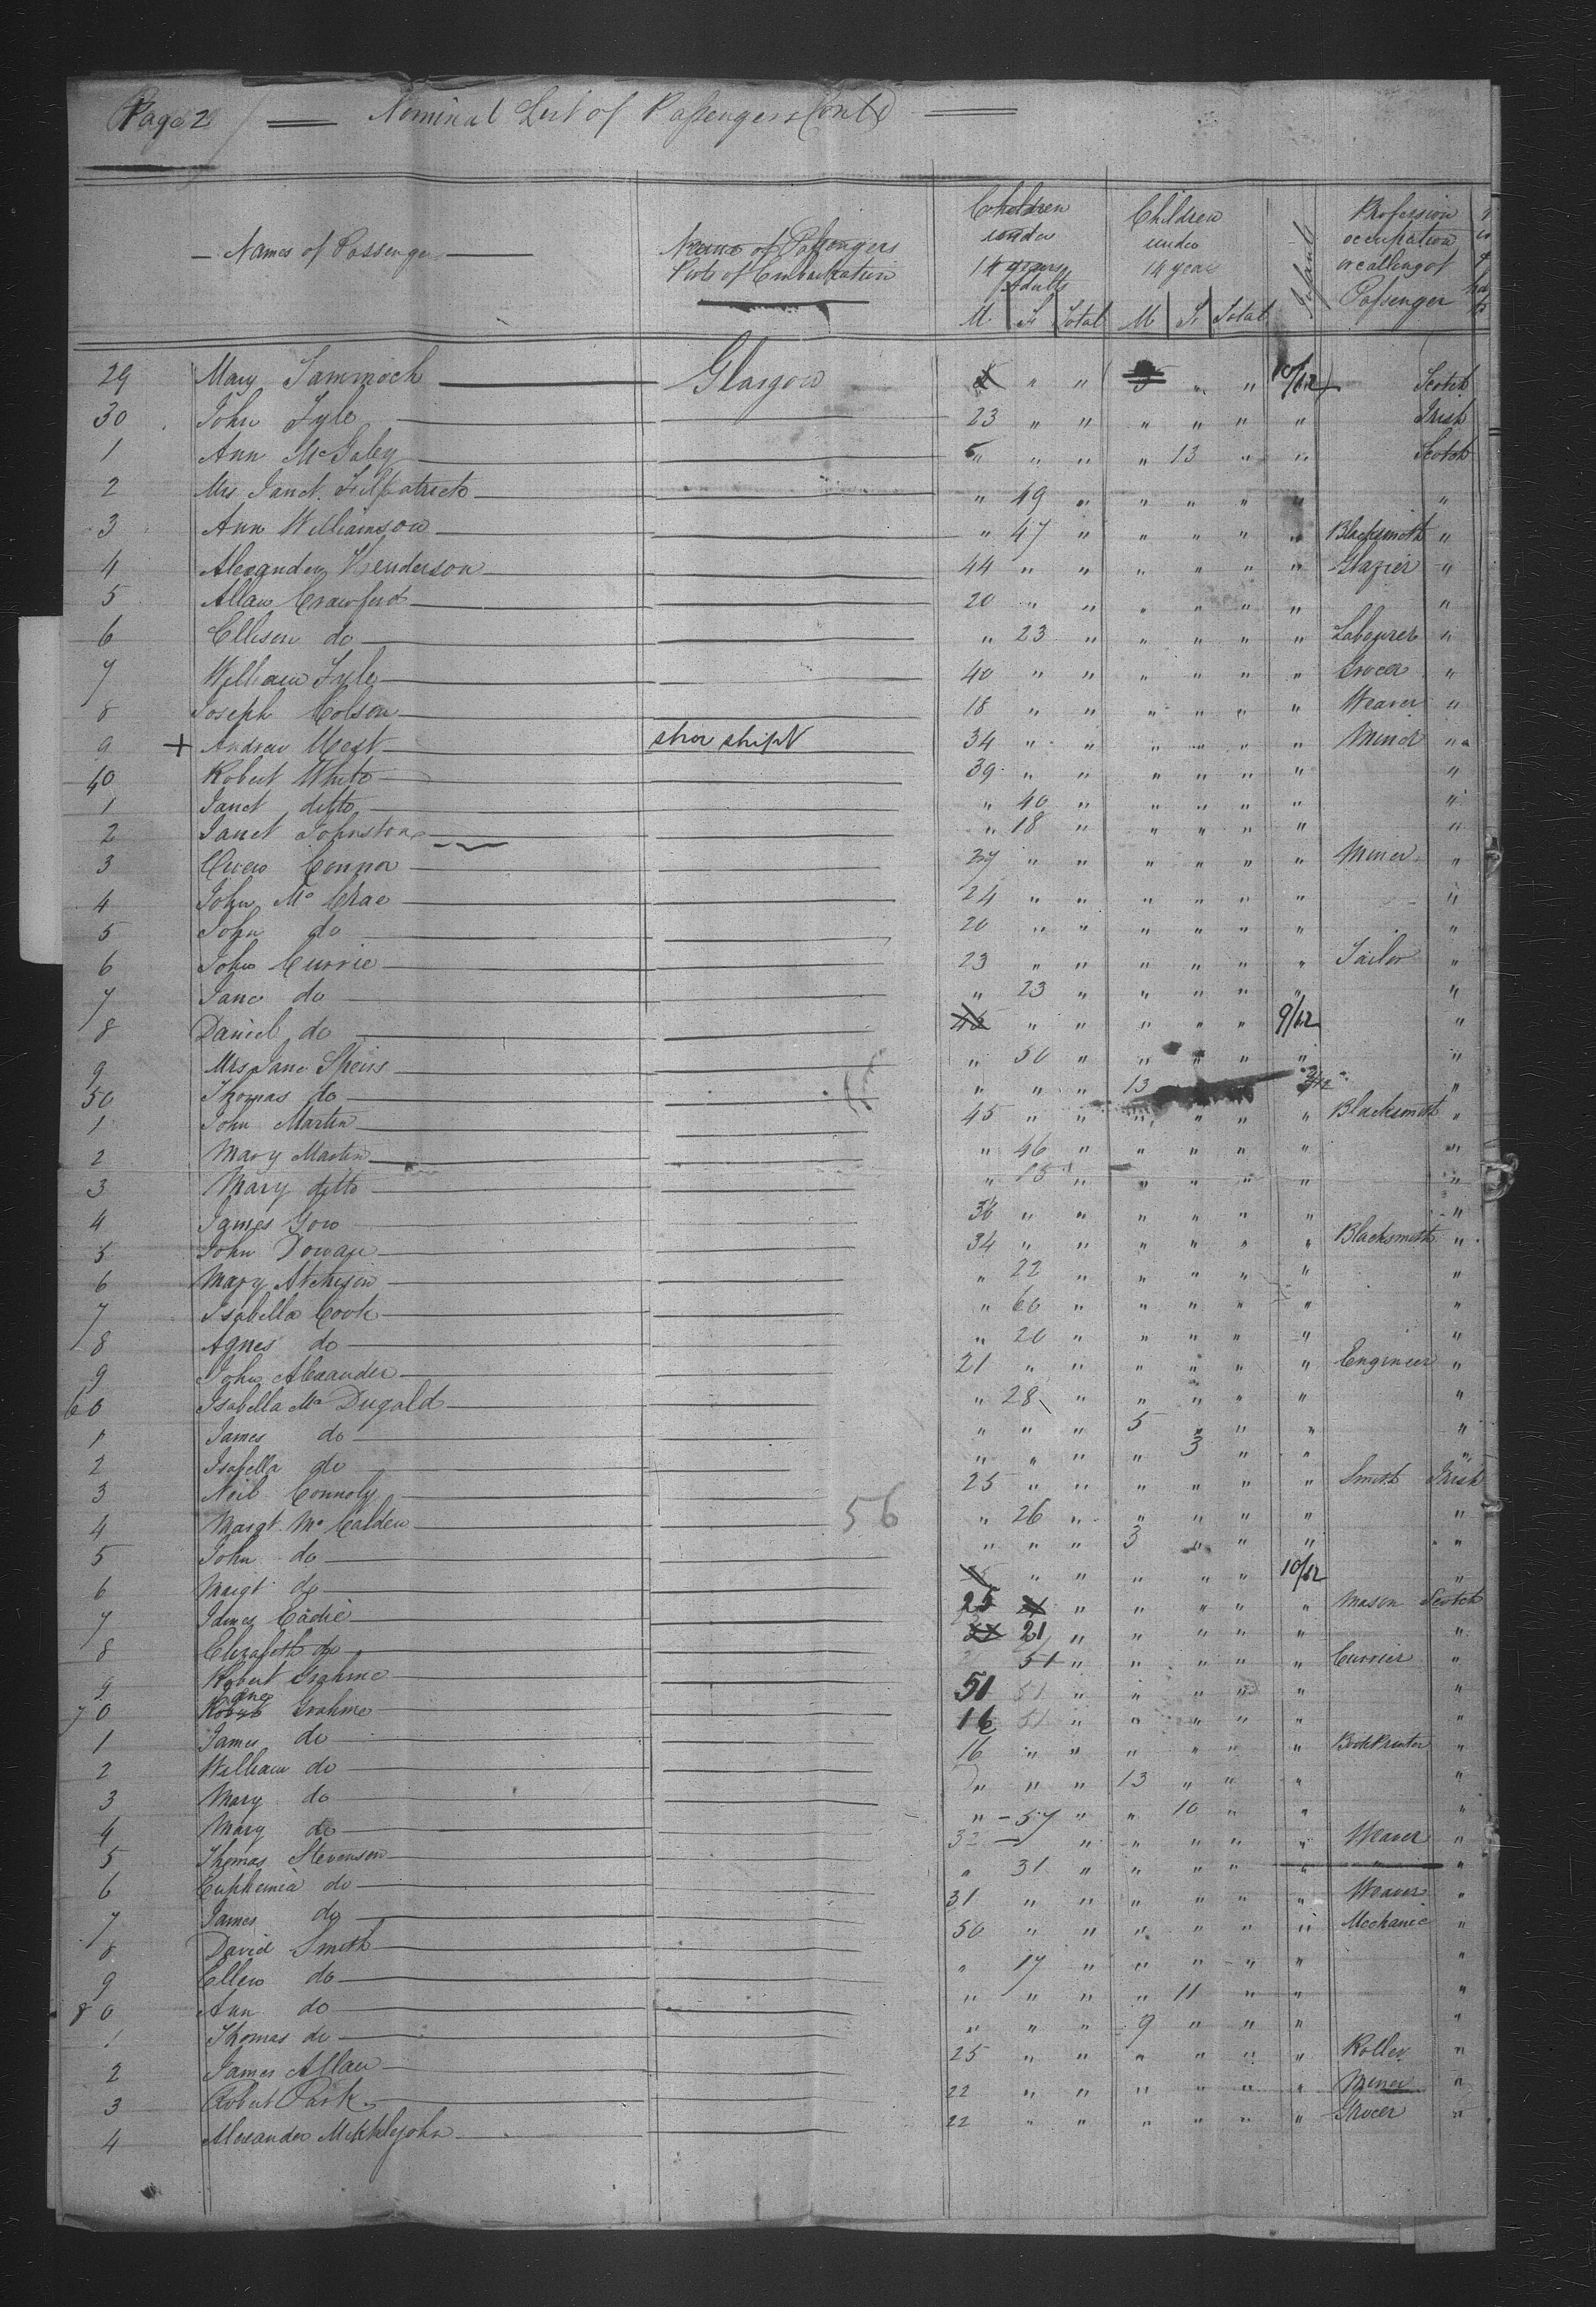 Page 2 Nominal List of Passengers Contd
Names of Passengers
Name of Passengers
Port of Embarkation
Children under 14 years Adults
M. F. Total
Children under 14 years
M F. Total
Infant
Profession occupation or calling of Passenger
29 Mary Glasgow " " " " 10/12 Scotch
30 John Lyle 23 " " " " " " Irish
1 Ann " " " 13 " " Scotch
2 Mrs Janet " 49 " " " " " "
3 Ann Williamson " 47 " " " " " Blacksmith "
4 Alexander Henderson 44 " " " " " " Glazier "
5 Allan Crawford 20 " " " " " " "
6 Ellison do " 23 " " " " " Labourer "
7 William Lyle 40 " " " " " " Grocer "
8 Joseph 18 " " " " " " Weaver "
9 + Andrew West 34 " " " " " " Miner "
40 Robert White 39 " " " " " " "
1 Janet ditto " 40 " " " " " "
2 Janet Johnstone " 18 " " " " " "
3 Connor 27 " " " " " " Miner "
4 John Mc Crae 24 " " " " " " "
5 John do 20 " " " " " " "
6 John Currie 23 " " " " " " Tailor "
7 Jane do " 23 " " " " " "
8 Daniel do " " " " " 9/12 "
9 Mrs Jane Speirs " 50 " " " " " "
50 Thomas do " " " 13 "
1 John Martin 45 " " " " " " Blacksmith "
2 Mary Martin " 46 " " " " " "
3 Mary ditto " 15 " " " " " "
4 James Gow 36 " " " " " " "
5 John 34 " " " " " " Blacksmith "
6 Mary Atchison " 22 " " " " " "
7 Isabella Cook " 60 " " " " " "
8 Agnes do " 20 " " " " " "
9 John Alexander 21 " " " " " " Engineer "
60 Isabella Mc Dugald " 28 " " " " " "
1 James do " " " 5 " " " "
2 Isabella do " " " " 3 " " "
3 Neil Connoly 25 " " " " " " Smith Irish
4 Margt Mc Calden 56 " 26 " " " " " "
5 John do " " " 3 " " " "
6 Margt do " " " " " 10/12 "
7 James Cadie 25 " " " " " Mason Scotch
8 Elizabeth do 21 " " " " " "
9 Robert Grahme 51 " " " " " Currier "
70 Jane Grahme 51 51 " " " " " "
1 James do 16 51 " " " " " "
2 William do 16 " " " " " " Book Printer "
3 Mary do " " " 13 " " " "
4 Mary do " 57 " " 10 " " "
5 Thomas Stevenson 32 " " " " " Weaver "
6 Euphemia do " 31 " " " " " "
7 James do 31 " " " " " " Weaver "
8 David Smith 50 " " " " " " Mechanic "
9 Ellen do " 17 " " " " " "
80 Ann do " " " " 11 " " "
1 Thomas do " " " 9 " " " "
2 James Allan 25 " " " " " " Roller "
3 Robert Park 22 " " " " " " Miner "
4 Alexander Mikklejohn 22 " " " " " " Grocer "